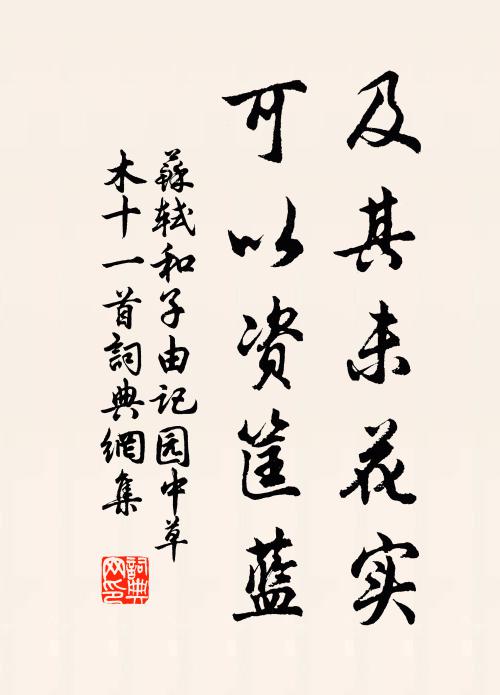 及其未花实
可以资筐蓝
蘇轼和子由记园中草
木十一首詞典網集
詞典
网印